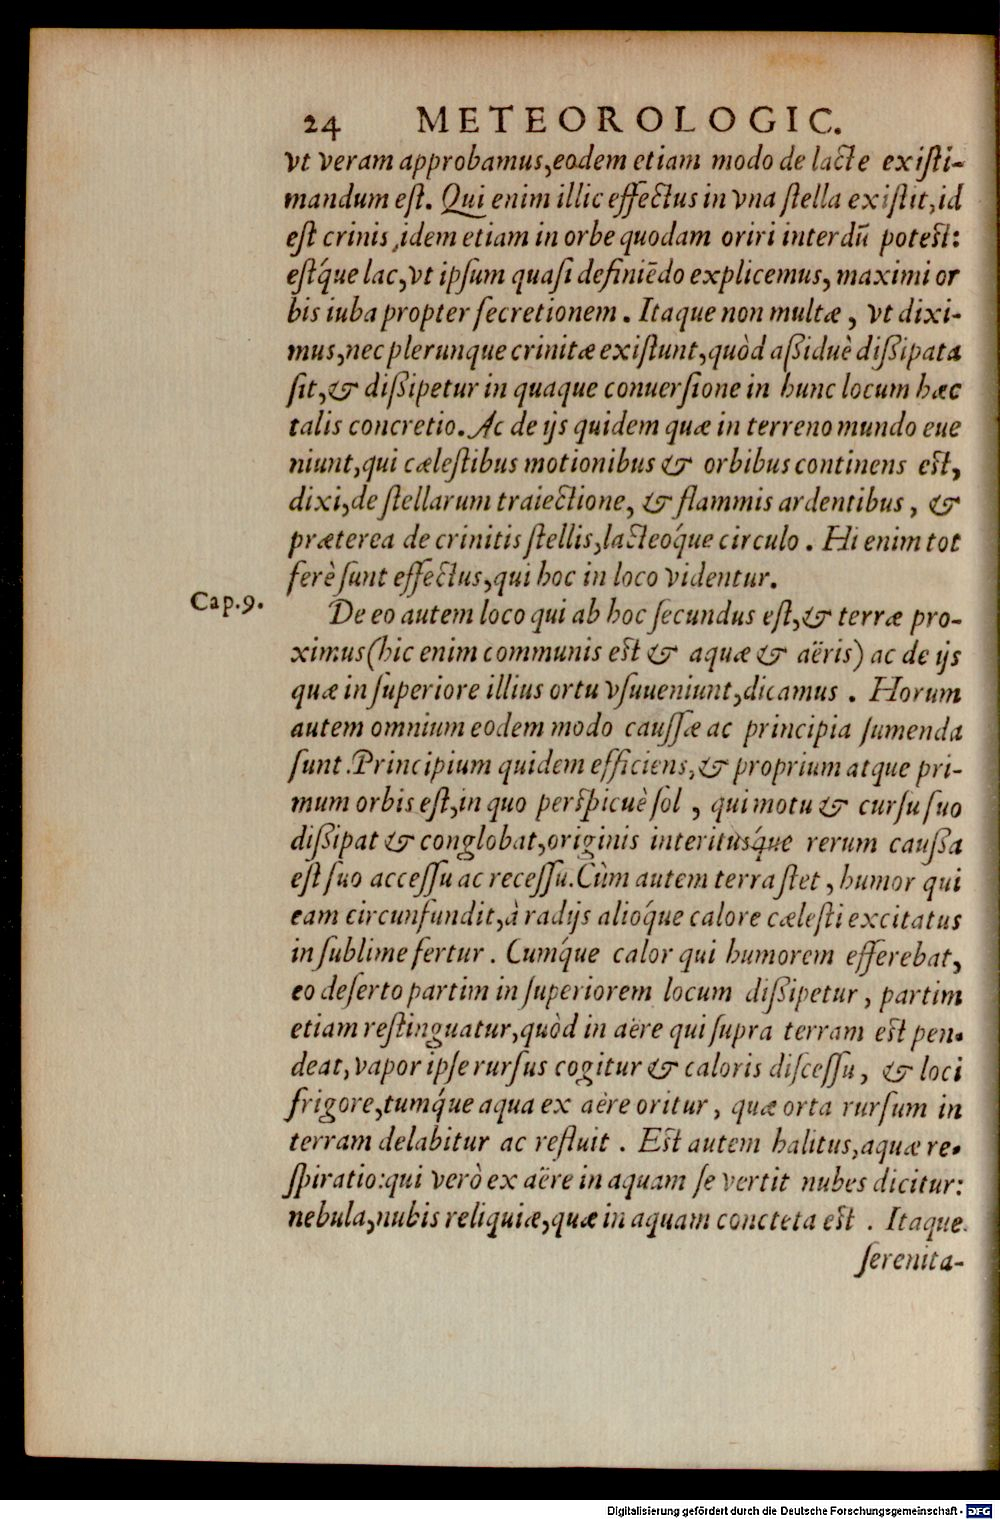 24 METEOROLOGIC.
vt veram approbamus,eodem etiam modo de lacte existi-
mandum est. Qui enim illic effectus in vna stella existit,id
est crinis ,idem etiam in orbe quodam oriri interdū potest:
estq́ue lac,vt ipsum quasi definiēdo explicemus, maximi or
bis iuba propter secretionem. Itaque non multæ, vt dixi-
mus,nec plerunque crinitæ existunt,quòd aßiduè dißipata
sit,& dißipetur in quaque conuersione in hunc locum hæc
talis concretio. Ac de ijs quidem quæ in terreno mundo eue
niunt,qui cælestibus motionibus & orbibus continens est,
dixi,de stellarum traiectione, & flammis ardentibus, &
præterea de crinitis stellis,lacteóque circulo. Hi enim tot
ferè sunt effectus,qui hoc in loco videntur.
Cap.9.
De eo autem loco qui ab hoc secundus est,& terræ pro-
ximus(hic enim communis est & aquæ & aëris) ac de ijs
quæ in superiore illius ortu vsuueniunt,dicamus. Horum
autem omnium eodem modo caussæ ac principia sumenda
sunt.Principium quidem efficiens,& proprium atque pri-
mum orbis est,in quo perspicuè sol, qui motu & cursu suo
dißipat & conglobat,originis interitusq́ue rerum caußa
est suo accessu ac recessu.Cùm autem terra stet, humor qui
eam circunfundit,à radijs alióque calore cælesti excitatus
in sublime fertur. Cumq́ue calor qui humorem efferebat,
eo deserto partim in superiorem locum dißipetur, partim
etiam restinguatur,quòd in aëre qui supra terram est pen-
deat,vapor ipse rursus cogitur & caloris discessu, & loci
frigore,tumq́ue aqua ex aëre oritur, quæ orta rursum in
terram delabitur ac refluit. Est autem halitus,aquæ re-
spiratio:qui verò ex aëre in aquam se vertit nubes dicitur:
nebula,nubis reliquiæ,quæ in aquam concteta est. Itaque
serenita-
Digitalisierung gefördert durch die Deutsche Forschungsgemeinschaft - DFG